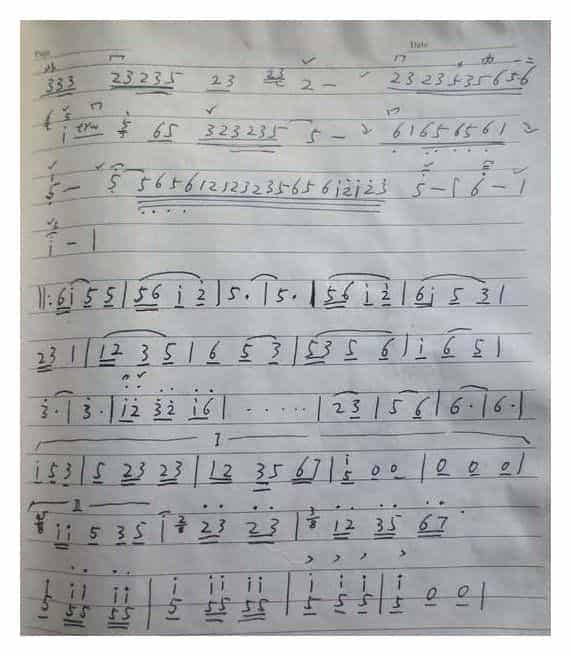 Date
333 23235 23 23 2 – 2323535656
i tr 5 65 323235 5 – 2 61656561 2
5 – 5 5656121232356561̇2̇1̇23 5 – 6 – i
i – |
||: 6i 5 5 | 56 i 2̇ | 5. | 5. | 56 i 2̇ | 6i 5 3 |
23 1 | 12 3 5 | 6 5 3 | 53 5 6 | i 6 5 |
3̇. | 3̇. | i̇2̇ 3̇2̇ i6 | ..... | 23 | 5 6 | 6. | 6. |
I
i 5 3 | 5 23 23 | 12 35 67 | i 5 0 0 | 0 0 0 |
II
ii 5 35 | 2/8 2̇3 2̇3 | 3/8 i̇2 3̇5 6̇7̇
i 5 ii 55 ii 55 | i 5 ii 55 ii 55 | i 5 i 5 i 5 | i 5 0 0 |